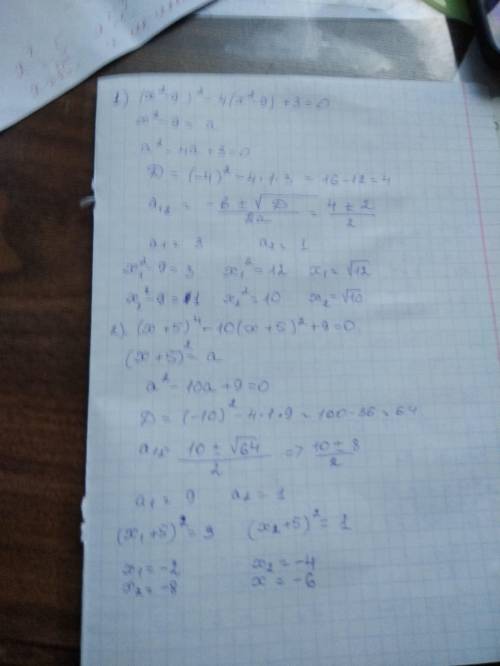 1) (x²-9)² - 4(x²-9) + 3 = 0
x² - 9 = a
a² - 4a + 3 = 0
D = (-4)² - 4·1·3 = 16 - 12 = 4
a₁,₂ = -b ± √D / 2a = 4 ± 2 / 2
a₁ = 3 a₂ = 1
x₁² - 9 = 3 x₁² = 12 x₁ = √12
x₂² - 9 = 1 x₂² = 10 x₂ = √10
2) (x + 5)⁴ - 10(x + 5)² + 9 = 0
(x + 5)² = a
a² - 10a + 9 = 0
D = (-10)² - 4·1·9 = 100 - 36 = 64
a₁,₂ = 10 ± √64 / 2 => 10 ± 8 / 2
a₁ = 9 a₂ = 1
(x₁ + 5)² = 9 (x₂ + 5)² = 1
x₁ = -2 x₂ = -4
x₂ = -8 x = -6